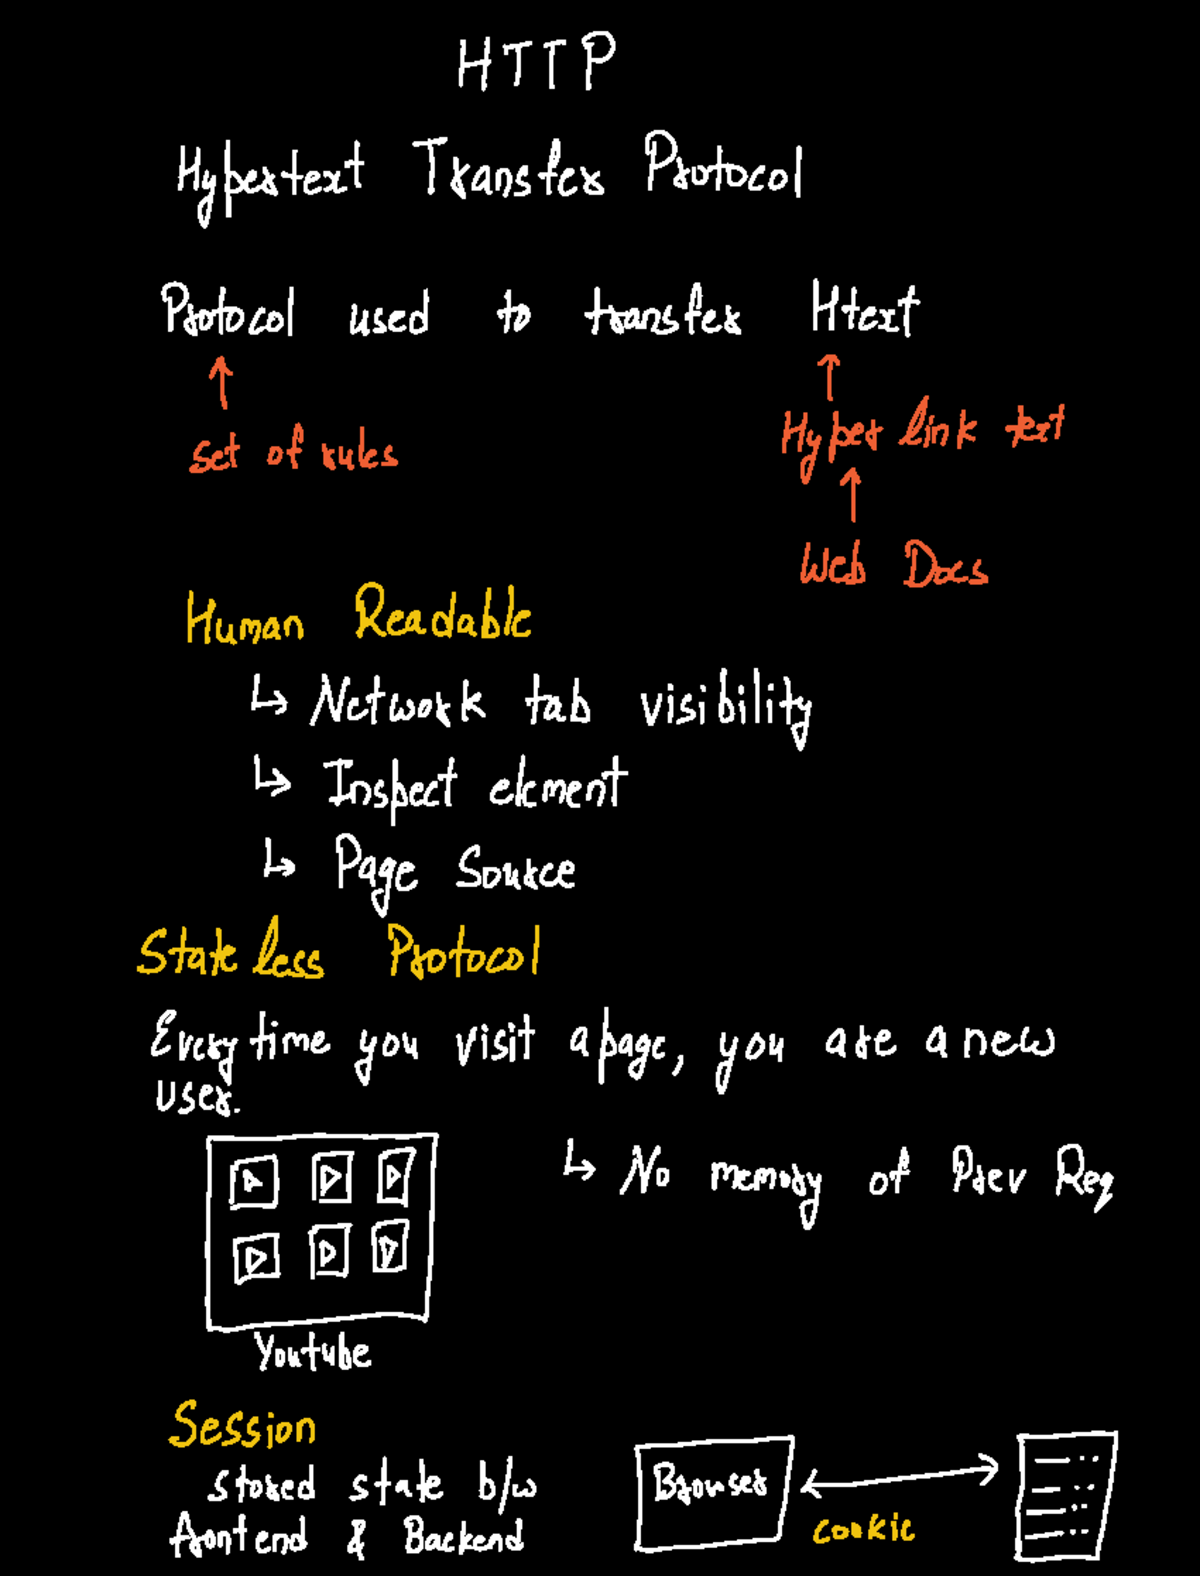 HTTP
Hypertext Transfer Protocol
Protocol used to transfer Htext
set of rules
Hyper link text
Web Docs
Human Readable
↳ Network tab visibility
↳ Inspect element
↳ Page Source
Stateless Protocol
Every time you visit a page, you are a new
user.
↳ No memory of Prev Req
Youtube
Session
stored state b/w
frontend & Backend
Browser
cookie